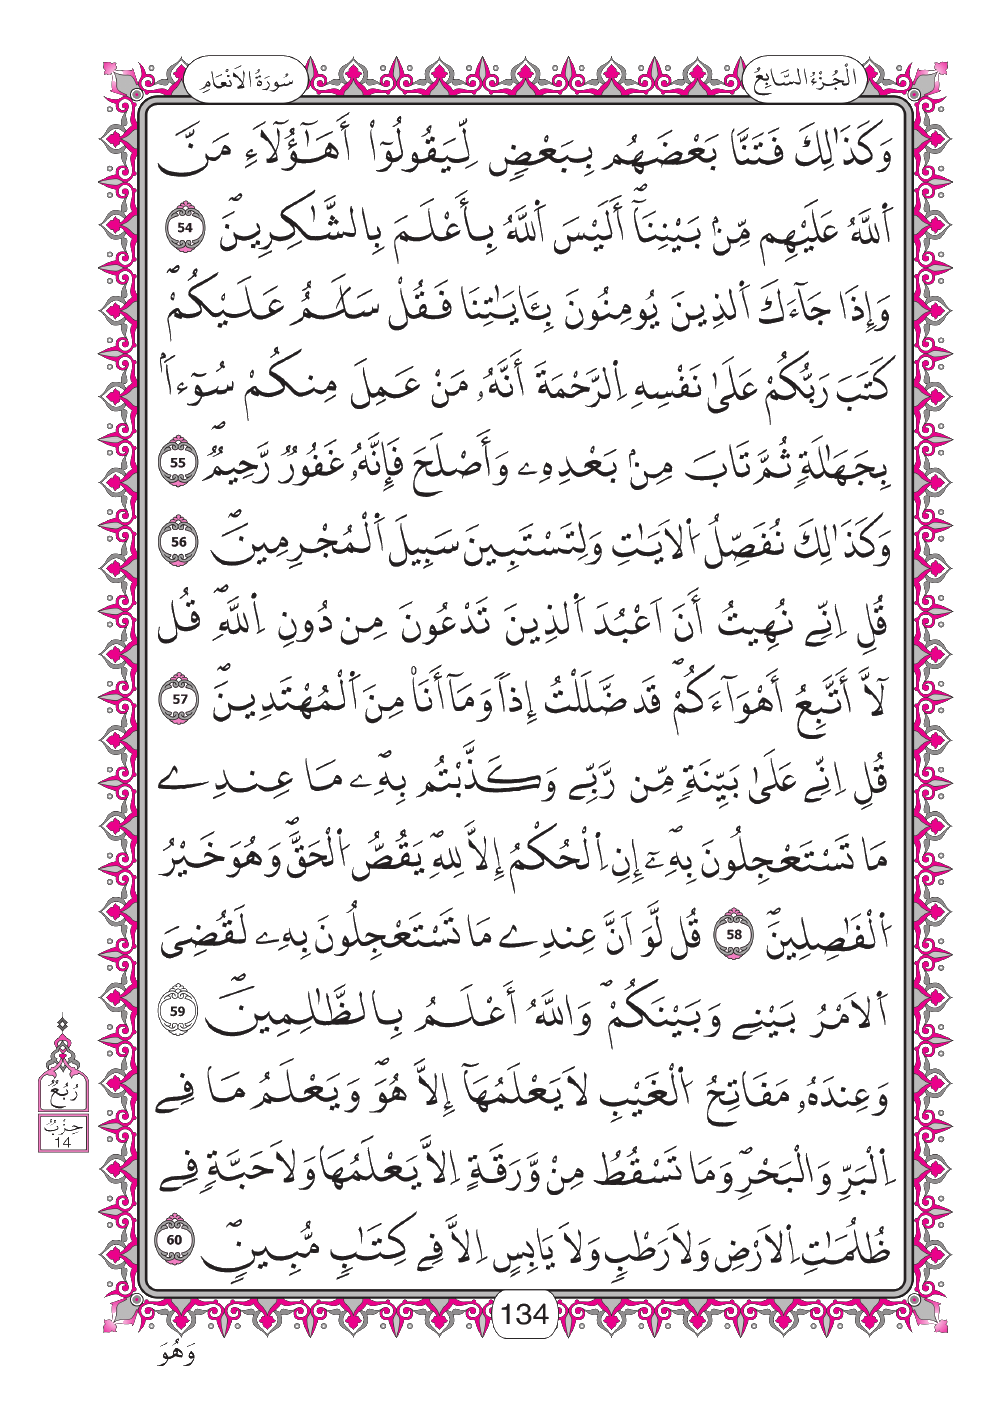 الْجُزْءُ السَّابِعُ
سُورَةُ الَانْعَامِ
وَكَذَٰلِكَ فَتَنَّا بَعْضَهُم بِبَعْضٍ لِّيَقُولُوٓاْ أَهَٰٓؤُلَآءِ مَنَّ
اَ۬للَّهُ عَلَيْهِم مِّنۢ بَيْنِنَآۖ أَلَيْسَ اَ۬للَّهُ بِأَعْلَمَ بِالشَّٰكِرِينَۖ 54
وَإِذَا جَآءَكَ اَ۬لذِينَ يُومِنُونَ بِـَٔايَٰتِنَا فَقُلْ سَلَٰمٌ عَلَيْكُمْۖ
كَتَبَ رَبُّكُمْ عَلَىٰ نَفْسِهِ اِ۬لرَّحْمَةَ أَنَّهُۥ مَنْ عَمِلَ مِنكُمْ سُوٓءاَۢ
بِجَهَٰلَةٖ ثُمَّ تَابَ مِنۢ بَعْدِهِۦ وَأَصْلَحَ فَإِنَّهُۥ غَفُورٞ رَّحِيمٞۖ 55
وَكَذَٰلِكَ نُفَصِّلُ اُ۬لَايَٰتِ وَلِتَسْتَبِينَ سَبِيلَ اَ۬لْمُجْرِمِينَۖ 56
قُلِ اِنِّے نُهِيتُ أَنَ اَعْبُدَ اَ۬لذِينَ تَدْعُونَ مِن دُونِ اِ۬للَّهِۖ قُل
لَّآ أَتَّبِعُ أَهْوَآءَكُمْۖ قَد ضَّلَلْتُ إِذاٗ وَمَآ أَنَا۠ مِنَ اَ۬لْمُهْتَدِينَۖ 57
قُلِ اِنِّے عَلَىٰ بَيِّنَةٖ مِّن رَّبِّے وَكَذَّبْتُم بِهِۦۖ مَا عِندِے
مَا تَسْتَعْجِلُونَ بِهِۦٓۖ إِنِ اِ۬لْحُكْمُ إِلَّا لِلهِۖ يَقُصُّ اُ۬لْحَقَّۖ وَهُوَ خَيْرُ
اُ۬لْفَٰصِلِينَۖ 58 قُل لَّوَ اَنَّ عِندِے مَا تَسْتَعْجِلُونَ بِهِۦ لَقُضِيَ
اَ۬لَامْرُ بَيْنِے وَبَيْنَكُمْۖ وَاللَّهُ أَعْلَمُ بِالظَّٰلِمِينَۖ 59
وَعِندَهُۥ مَفَاتِحُ اُ۬لْغَيْبِ لَا يَعْلَمُهَآ إِلَّا هُوَۖ وَيَعْلَمُ مَا فِے
اِ۬لْبَرِّ وَالْبَحْرِۖ وَمَا تَسْقُطُ مِنْ وَّرَقَةٍ اِلَّا يَعْلَمُهَا وَلَا حَبَّةٖ فِے
ظُلُمَٰتِ اِ۬لَارْضِ وَلَا رَطْبٖ وَلَا يَابِسٍ اِلَّا فِے كِتَٰبٖ مُّبِينٖۖ 60
رُبُعُ
حِزْبُ
14
134
وَهُوَ